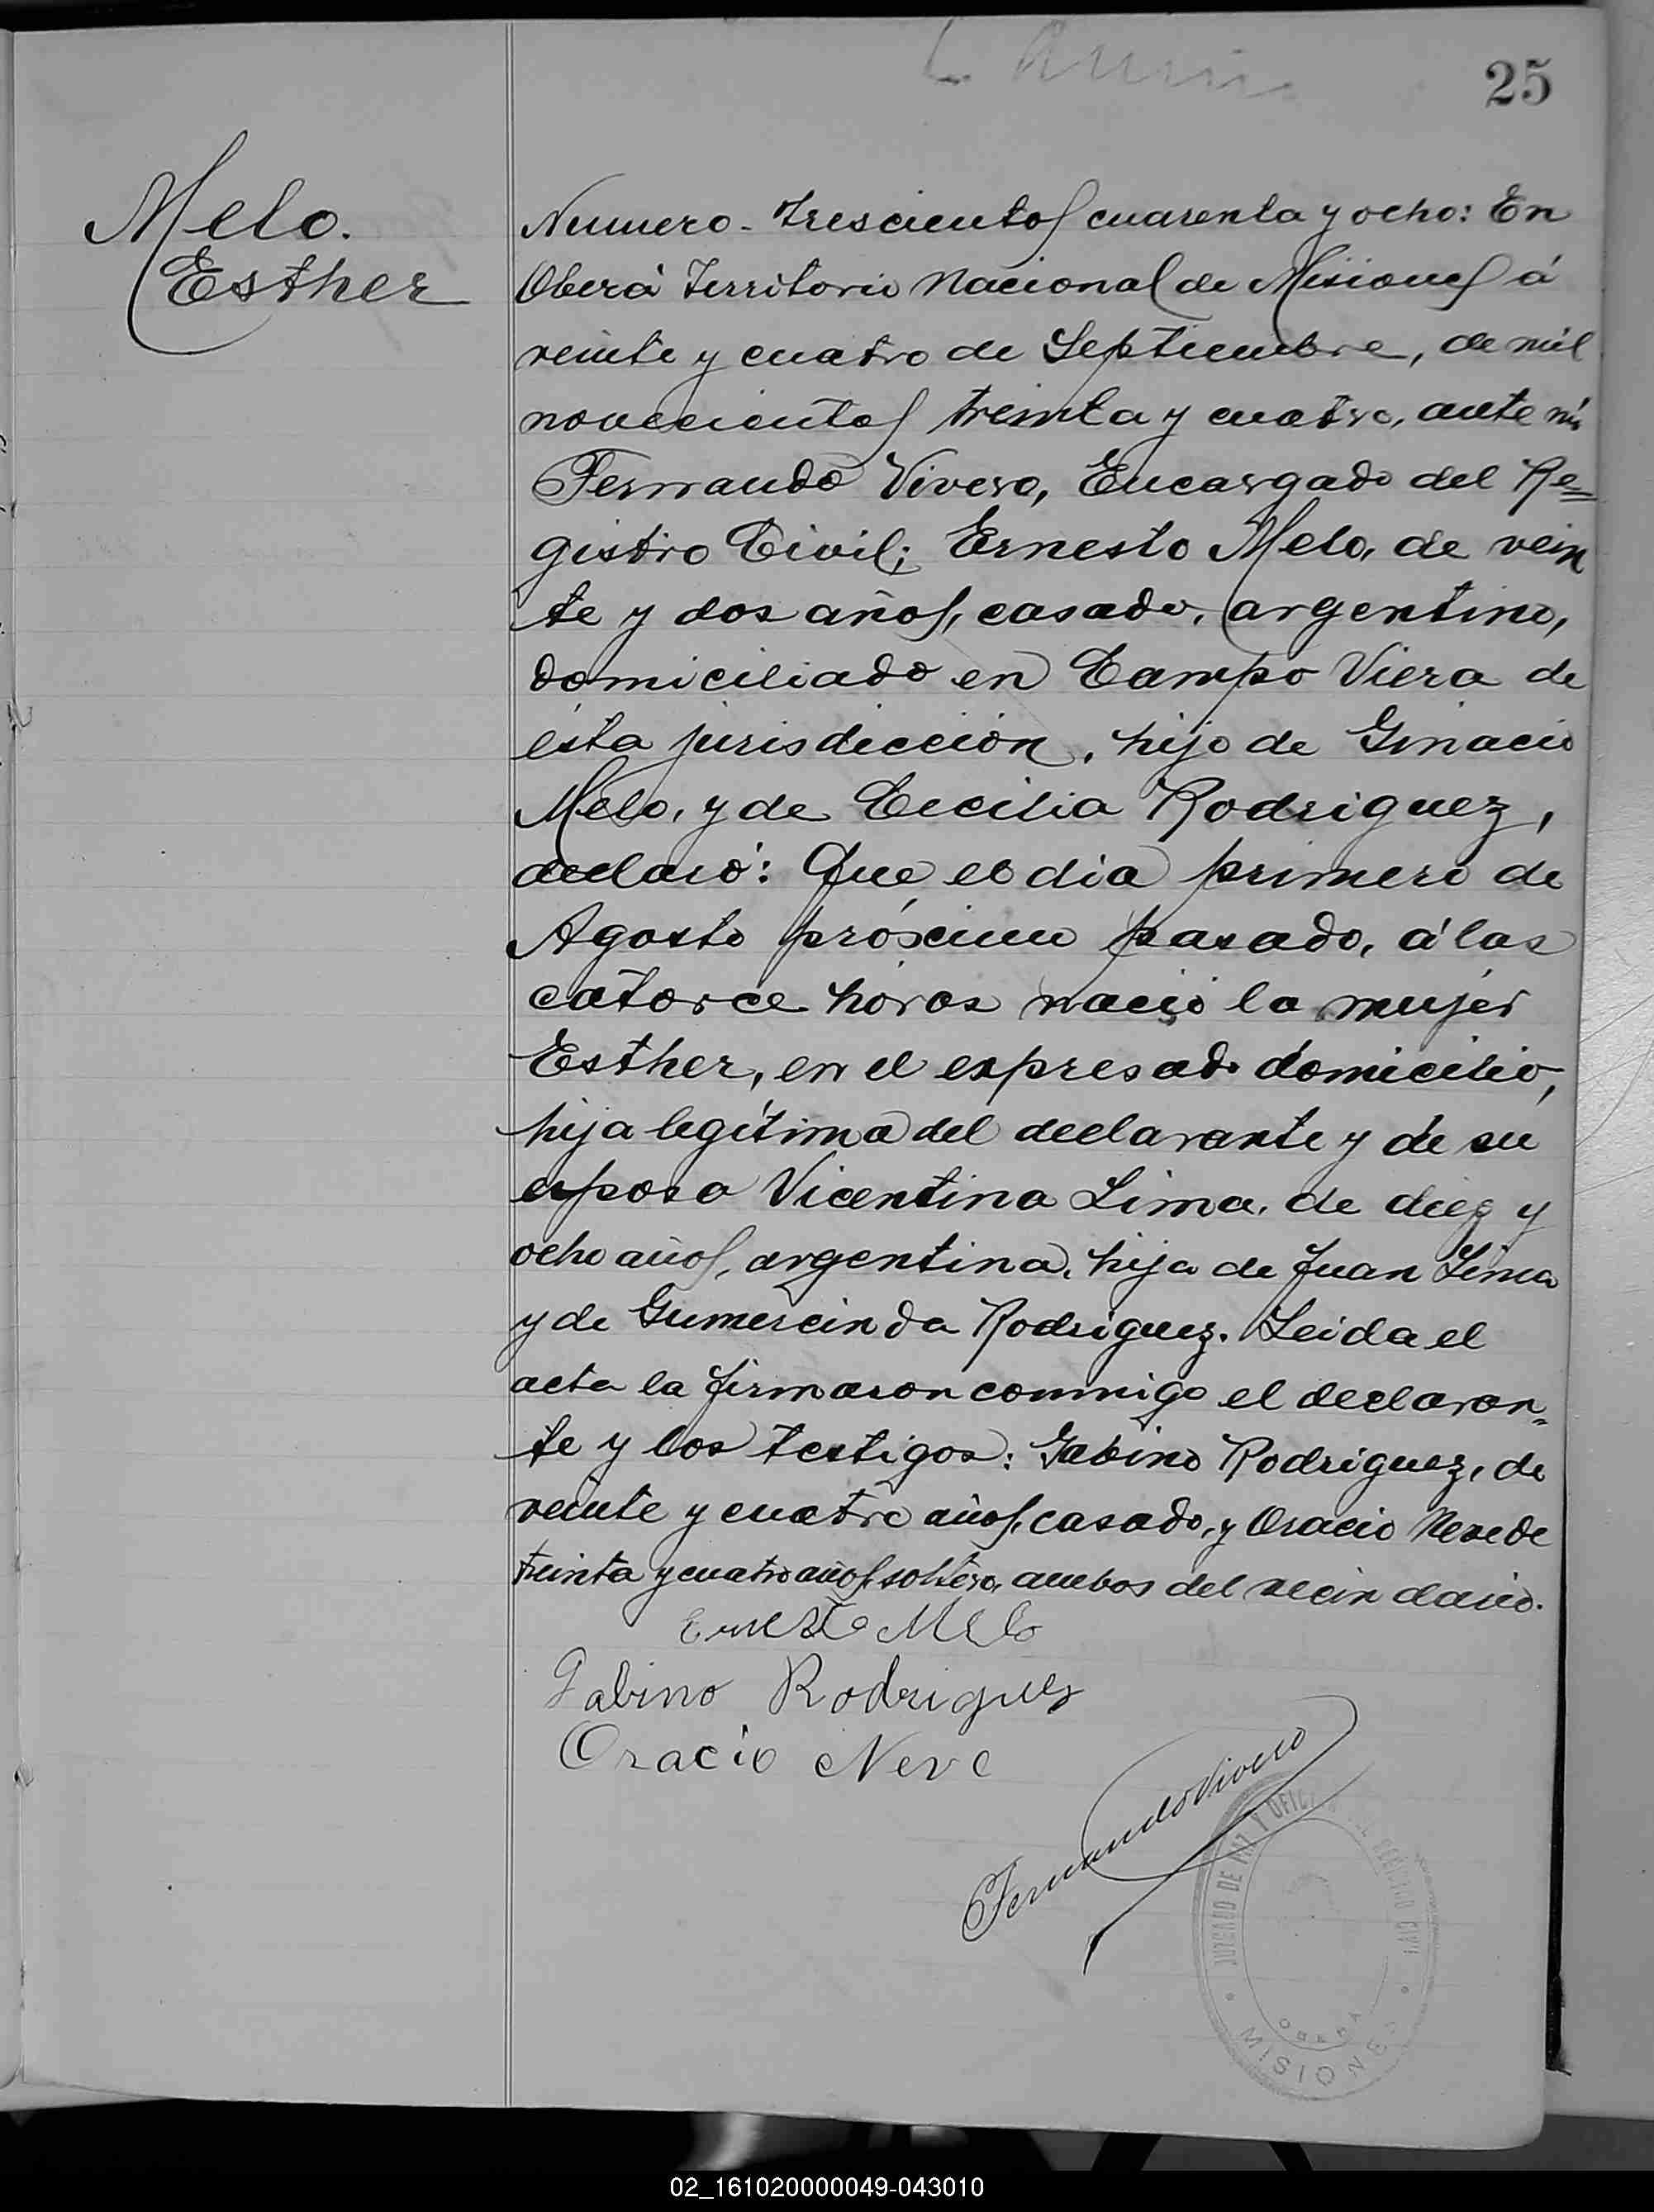 25
Melo.
Esther
Numero - Trescientos cuarenta y ocho: En
Oberá Territorio Nacional de Misiones á
veinte y cuatro de Septiembre, de mil
novecientos treinta y cuatro, ante mí
Fernando Vivero, Encargado del Re=
gistro Civil; Ernesto Melo, de vein
te y dos años, casado, argentino,
domiciliado en Campo Viera de
ésta jurisdicción, hijo de Ginacio
Melo, y de Cecilia Rodriguez,
declaró: Que el dia primero de
Agosto próximo pasado, á las
catorce horas nació la mujer
Esther, en el expresado domicilio,
hija legítima del declarante y de su
esposa Vicentina Lima, de diez y
ocho años, argentina, hija de Juan Lima
y de Gumercinda Rodriguez. Leida el
acta la firmaron conmigo el declaran=
te y los testigos: Gabino Rodriguez, de
veinte y cuatro años, casado, y Oracio Neve de
treinta y cuatro años, soltero, ambos del vecindario.
Ernesto Melo
Gabino Rodriguez
Oracio Neve
Fernando Vivero
JUZGADO DE PAZ Y OFICINA DEL REGISTRO CIVIL
OBERA
MISIONES
02_161020000049-043010